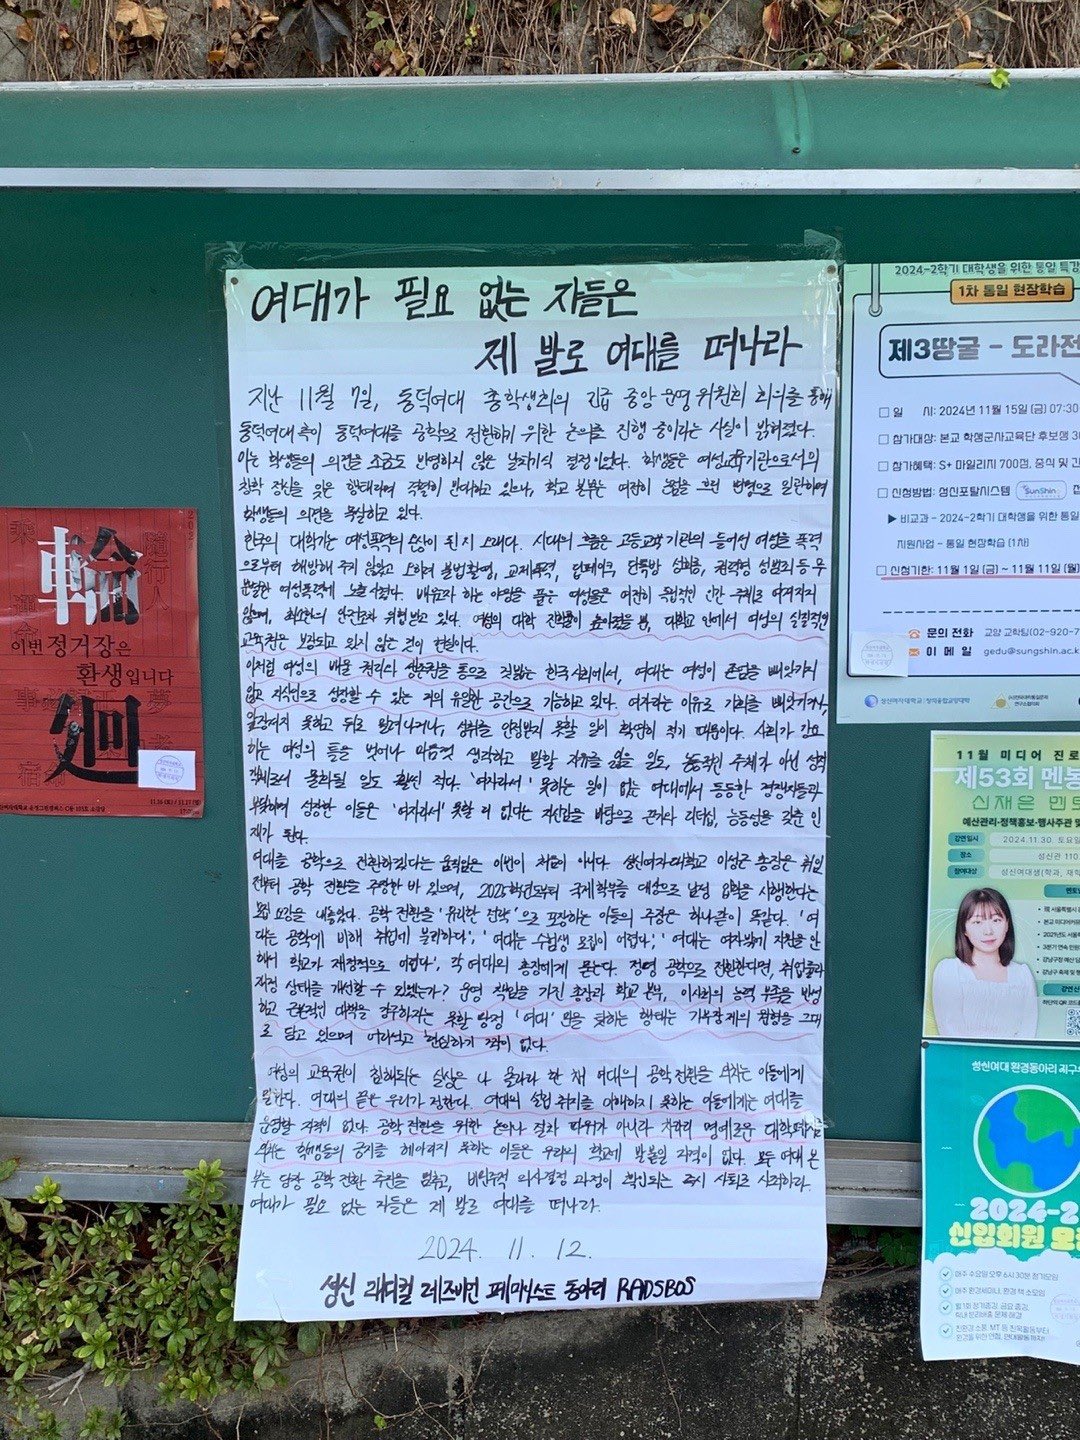 여대가 필요 없는 자들은
제 발로 여대를 떠나라
지난 11월 7일, 동덕여대 총학생회의 긴급 중앙운영위원회 회의를 통해
동덕여대 측이 동덕여대를 공학으로 전환하기 위한 논의를 진행 중이라는 사실이 밝혀졌다.
이는 학생들의 의견을 조금도 반영하지 않은 날치기식 결정이었다. 학생들은 여성교육기관으로서의
창학 정신을 잊은 행태라며 격렬히 반대하고 있으나, 학교 본부는 여전히 논점을 흐린 변명으로 일관하며
학생들의 의견을 묵살하고 있다.
한국의 대학가는 여성폭력의 온상이 된 지 오래다. 시대의 흐름은 고등교육기관에 들어선 여성을 폭력
으로부터 해방해 주지 않았고 오히려 불법촬영, 교제폭력, 딥페이크, 단톡방 성희롱, 권력형 성범죄 등 무
분별한 여성폭력에 노출시켰다. 배움과 하는 야망을 품은 여성들은 여전히 독립적인 인간 주체로 여겨지지
않으며, 최소한의 안전조차 위협받고 있다. 여성의 대학 진학률이 높아졌을 뿐, 대학교 안에서 여성의 실질적인
교육권은 보장되고 있지 않은 것이 현실이다.
이처럼 여성의 배울 권리와 생존권을 통으로 짓밟는 한국 사회에서, 여대는 여성이 존엄을 빼앗기지
않고 지성인으로 성장할 수 있는 거의 유일한 공간으로 기능하고 있다. 여자라는 이유로 기회를 빼앗기거나,
앞장서지 못하고 뒤로 밀려나거나, 성취를 인정받지 못할 일이 확연히 적기 때문이다. 사회가 강요
하는 여성의 틀을 벗어나 마음껏 생각하고 말할 자유를 잃을 일도, 능동적인 주체가 아닌 성적
객체로서 물화될 일도 훨씬 적다. '여자라서' 못하는 일이 없는 여대에서 동등한 경쟁자들과
부딪히며 성장한 이들은 '여자라서' 못할 리 없다는 자신감을 바탕으로 끈기와 리더십, 능동성을 갖춘 인
재가 된다.
여대를 공학으로 전환하겠다는 움직임은 이번이 처음이 아니다. 성신여자대학교 이성근 총장은 취임
전부터 공학 전환을 주장한 바 있으며, 2025학년도부터 국제학부를 대상으로 남성 입학을 시행한다는
모집 요강을 내놓았다. 공학 전환을 '유리한 전략'으로 포장하는 이들의 주장은 하나같이 똑같다. '여
대는 공학에 비해 취업에 불리하다', '여대는 수험생 모집이 어렵다', '여대는 여자밖에 지원을 안
해서 학교가 재정적으로 어렵다'. 각 여대의 총장에게 묻는다. 정녕 공학으로 전환한다면, 취업률과
재정 상태를 개선할 수 있겠는가? 운영 책임을 가진 총장과 학교 본부, 이사회의 능력 부족을 반성
하고 근본적인 대책을 강구하지는 못할 망정 '여대' 탓을 하는 행태는 가부장제의 원형을 그대
로 담고 있으며 어리석고 한심하기 짝이 없다.
여성의 교육권이 침해되는 실상은 나 몰라라 한 채 여대의 공학 전환을 외치는 이들에게
말한다. 여대의 끝은 우리가 정한다. 여대의 설립 취지를 이해하지 못하는 이들에게는 여대를
운영할 자격이 없다. 공학 전환을 위한 논의나 절차 따위가 아니라 차라리 명예로운 대학 폐교를
외치는 학생들의 긍지를 헤아리지 못하는 이들은 우리의 학교에 발붙일 자격이 없다. 모든 여대 본
부는 당장 공학 전환 추진을 멈추고, 비민주적 의사결정 과정이 확인되는 즉시 사퇴로 사죄하라.
여대가 필요 없는 자들은 제 발로 여대를 떠나라.
2024. 11. 12.
성신 래디컬 레즈비언 페미니스트 동아리 RADSBOS
輪
이번 정거장은
환생입니다
廻
2024-2학기 대학생을 위한 통일 특강
1차 통일 현장학습
제3땅굴 - 도라전
□ 일 시: 2024년 11월 15일(금) 07:30
□ 참가대상: 본교 학생군사교육단 후보생 30
□ 참가혜택: S+ 마일리지 700점, 중식 및 간
□ 신청방법: 성신포탈시스템 SunShin 접
▶ 비교과 - 2024-2학기 대학생을 위한 통일
지원사업 - 통일 현장학습 (1차)
□ 신청기한: 11월 1일(금) ~ 11월 11일(월)
문의 전화 교양 교학팀(02-920-7
이 메 일 gedu@sungshin.ac.k
11월 미디어 진로
제53회 멘토
신재은 멘토
예산관리·정책홍보·행사주관 및
강연일시 2024.11.30. 토요일
장소 성신관 110
참여대상 성신여대생(학과, 재학
성신여대 환경동아리 지구
2024-2
신입회원 모
매주 수요일 오후 6시 30분 정기모임